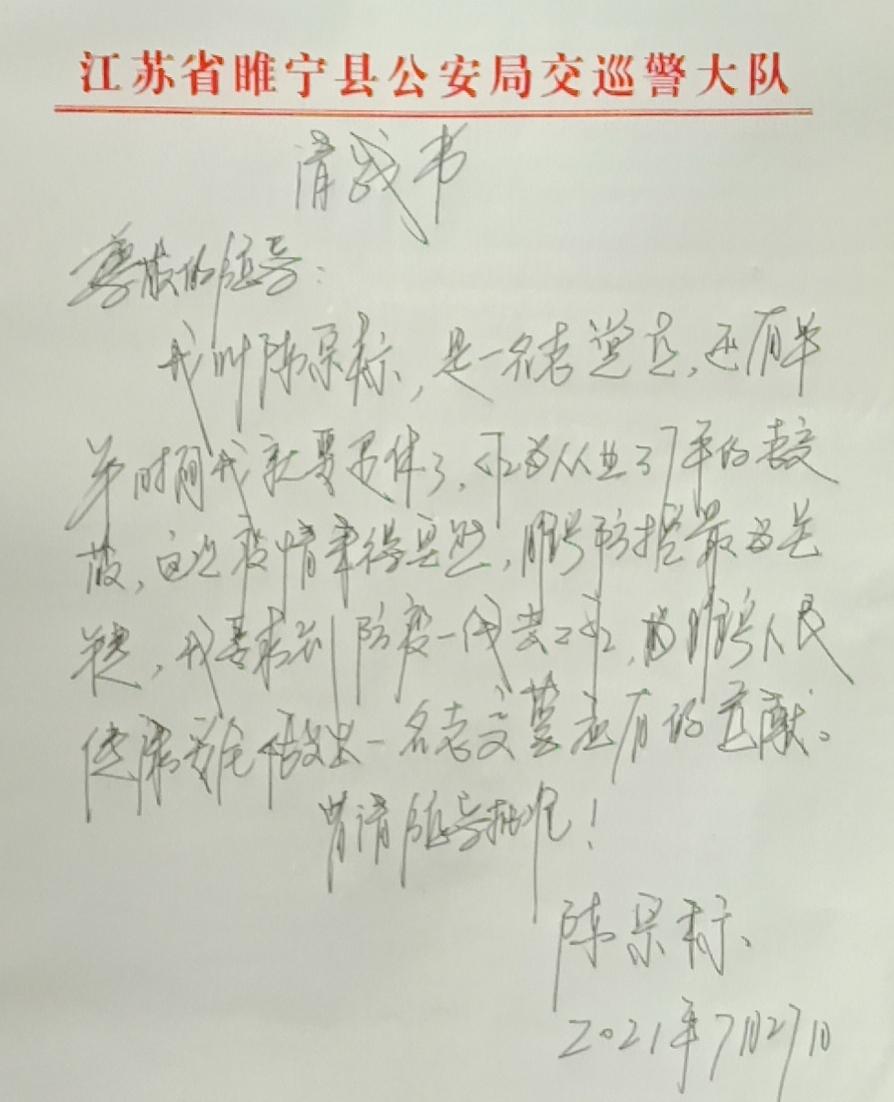 江苏省睢宁县公安局交巡警大队
请战书
尊敬的领导：
我叫陈杲标，是一名老党员，还有半
年时间我就要退休了，作为从业37年的老交
警，这次疫情来得突然，睢宁防控最为关
键，我要求到防疫一线去工作，为睢宁人民
健康安全做出一名老交警应有的贡献。
肯请领导批准！
陈杲标
2021年7月27日